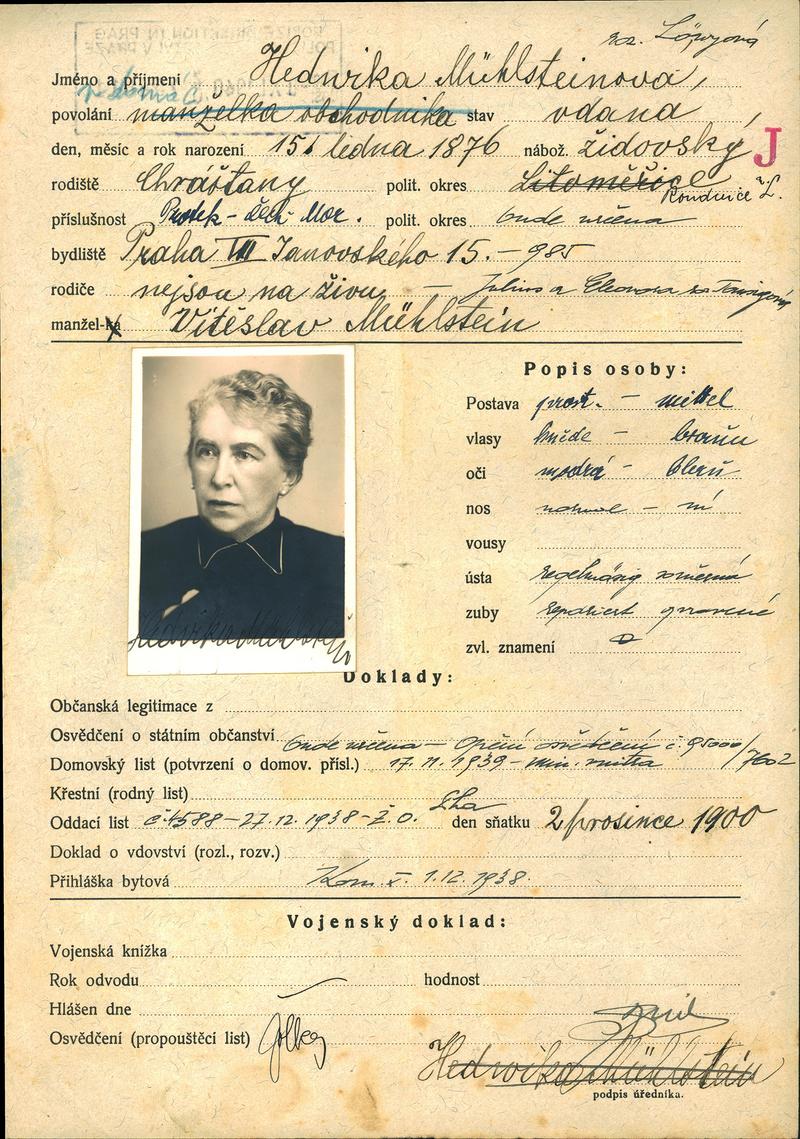 roz. Löwyová
Jméno a příjmení Hedvika Mühlsteinová,
povolání manželka obchodníka stav vdaná
v domác.
den, měsíc a rok narození 15. ledna 1876 nábož. židovský J
rodiště Chrášťany polit. okres Litoměřice
Roudnice n. L.
příslušnost Protek-Čech Mor. polit. okres bude určena
bydliště Praha VII Janovského 15. - 985
rodiče nejsou na živu - Julius a Eleonora roz.
manžel-ka Vítěslav Mühlstein
Popis osoby:
Postava prost. - mittel
vlasy hnědé - braun
oči modrá - blau
nos
vousy
ústa regelmäsig souměrná
zuby repariert spravené
zvl. znamení
Hedvika Mühlstein
Doklady:
Občanská legitimace z
Osvědčení o státním občanství bude určena - osvědčení č. 95000/7602
Domovský list (potvrzení o domov. přísl.) 17.11.1939 - min. vnitra
Křestní (rodný list)
Oddací list č. 4588-27.12.1938-Ž.O. Lha den sňatku 2 prosince 1900
Doklad o vdovství (rozl., rozv.)
Přihláška bytová Kom. X. 1.12.1938.
Vojenský doklad:
Vojenská knížka
Rok odvodu hodnost
Hlášen dne
Osvědčení (propouštěcí list)
Hedvika Mühlstein
podpis úředníka.